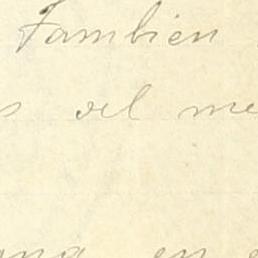 Tambien
s del me
ana en e